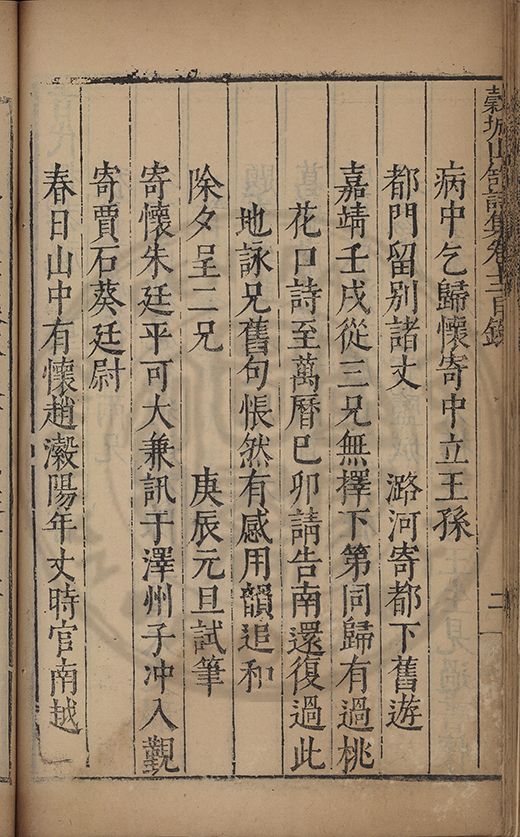 穀城山館詩集卷十二目錄
二
病中乞歸懷寄中立王孫
都門留別諸丈 潞河寄都下舊遊
嘉靖壬戌從三兄無擇下第同歸有過桃
花口詩至萬曆巳卯請告南還復過此
地詠兄舊句悵然有感用韻追和
除夕呈二兄 庚辰元旦試筆
寄懷朱廷平可大兼訊于澤州子冲入覲
寄賈石葵廷尉
春日山中有懷趙瀫陽年丈時官南越